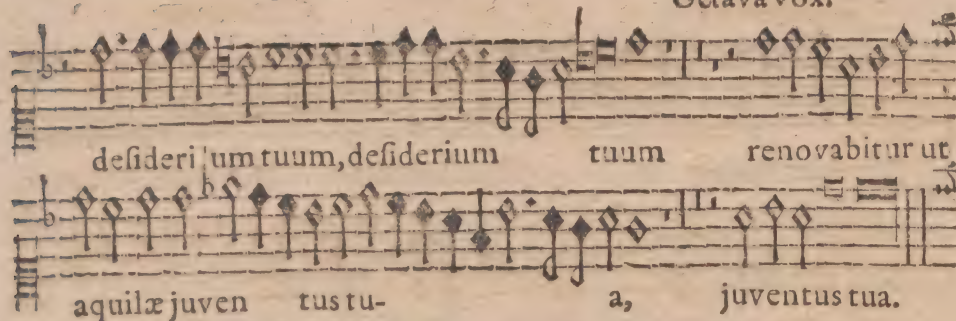 Octava vox.
deſideri um tuum, deſiderium tuum renovabitur ut
aquilæ juven tus tu- a, juventus tua.